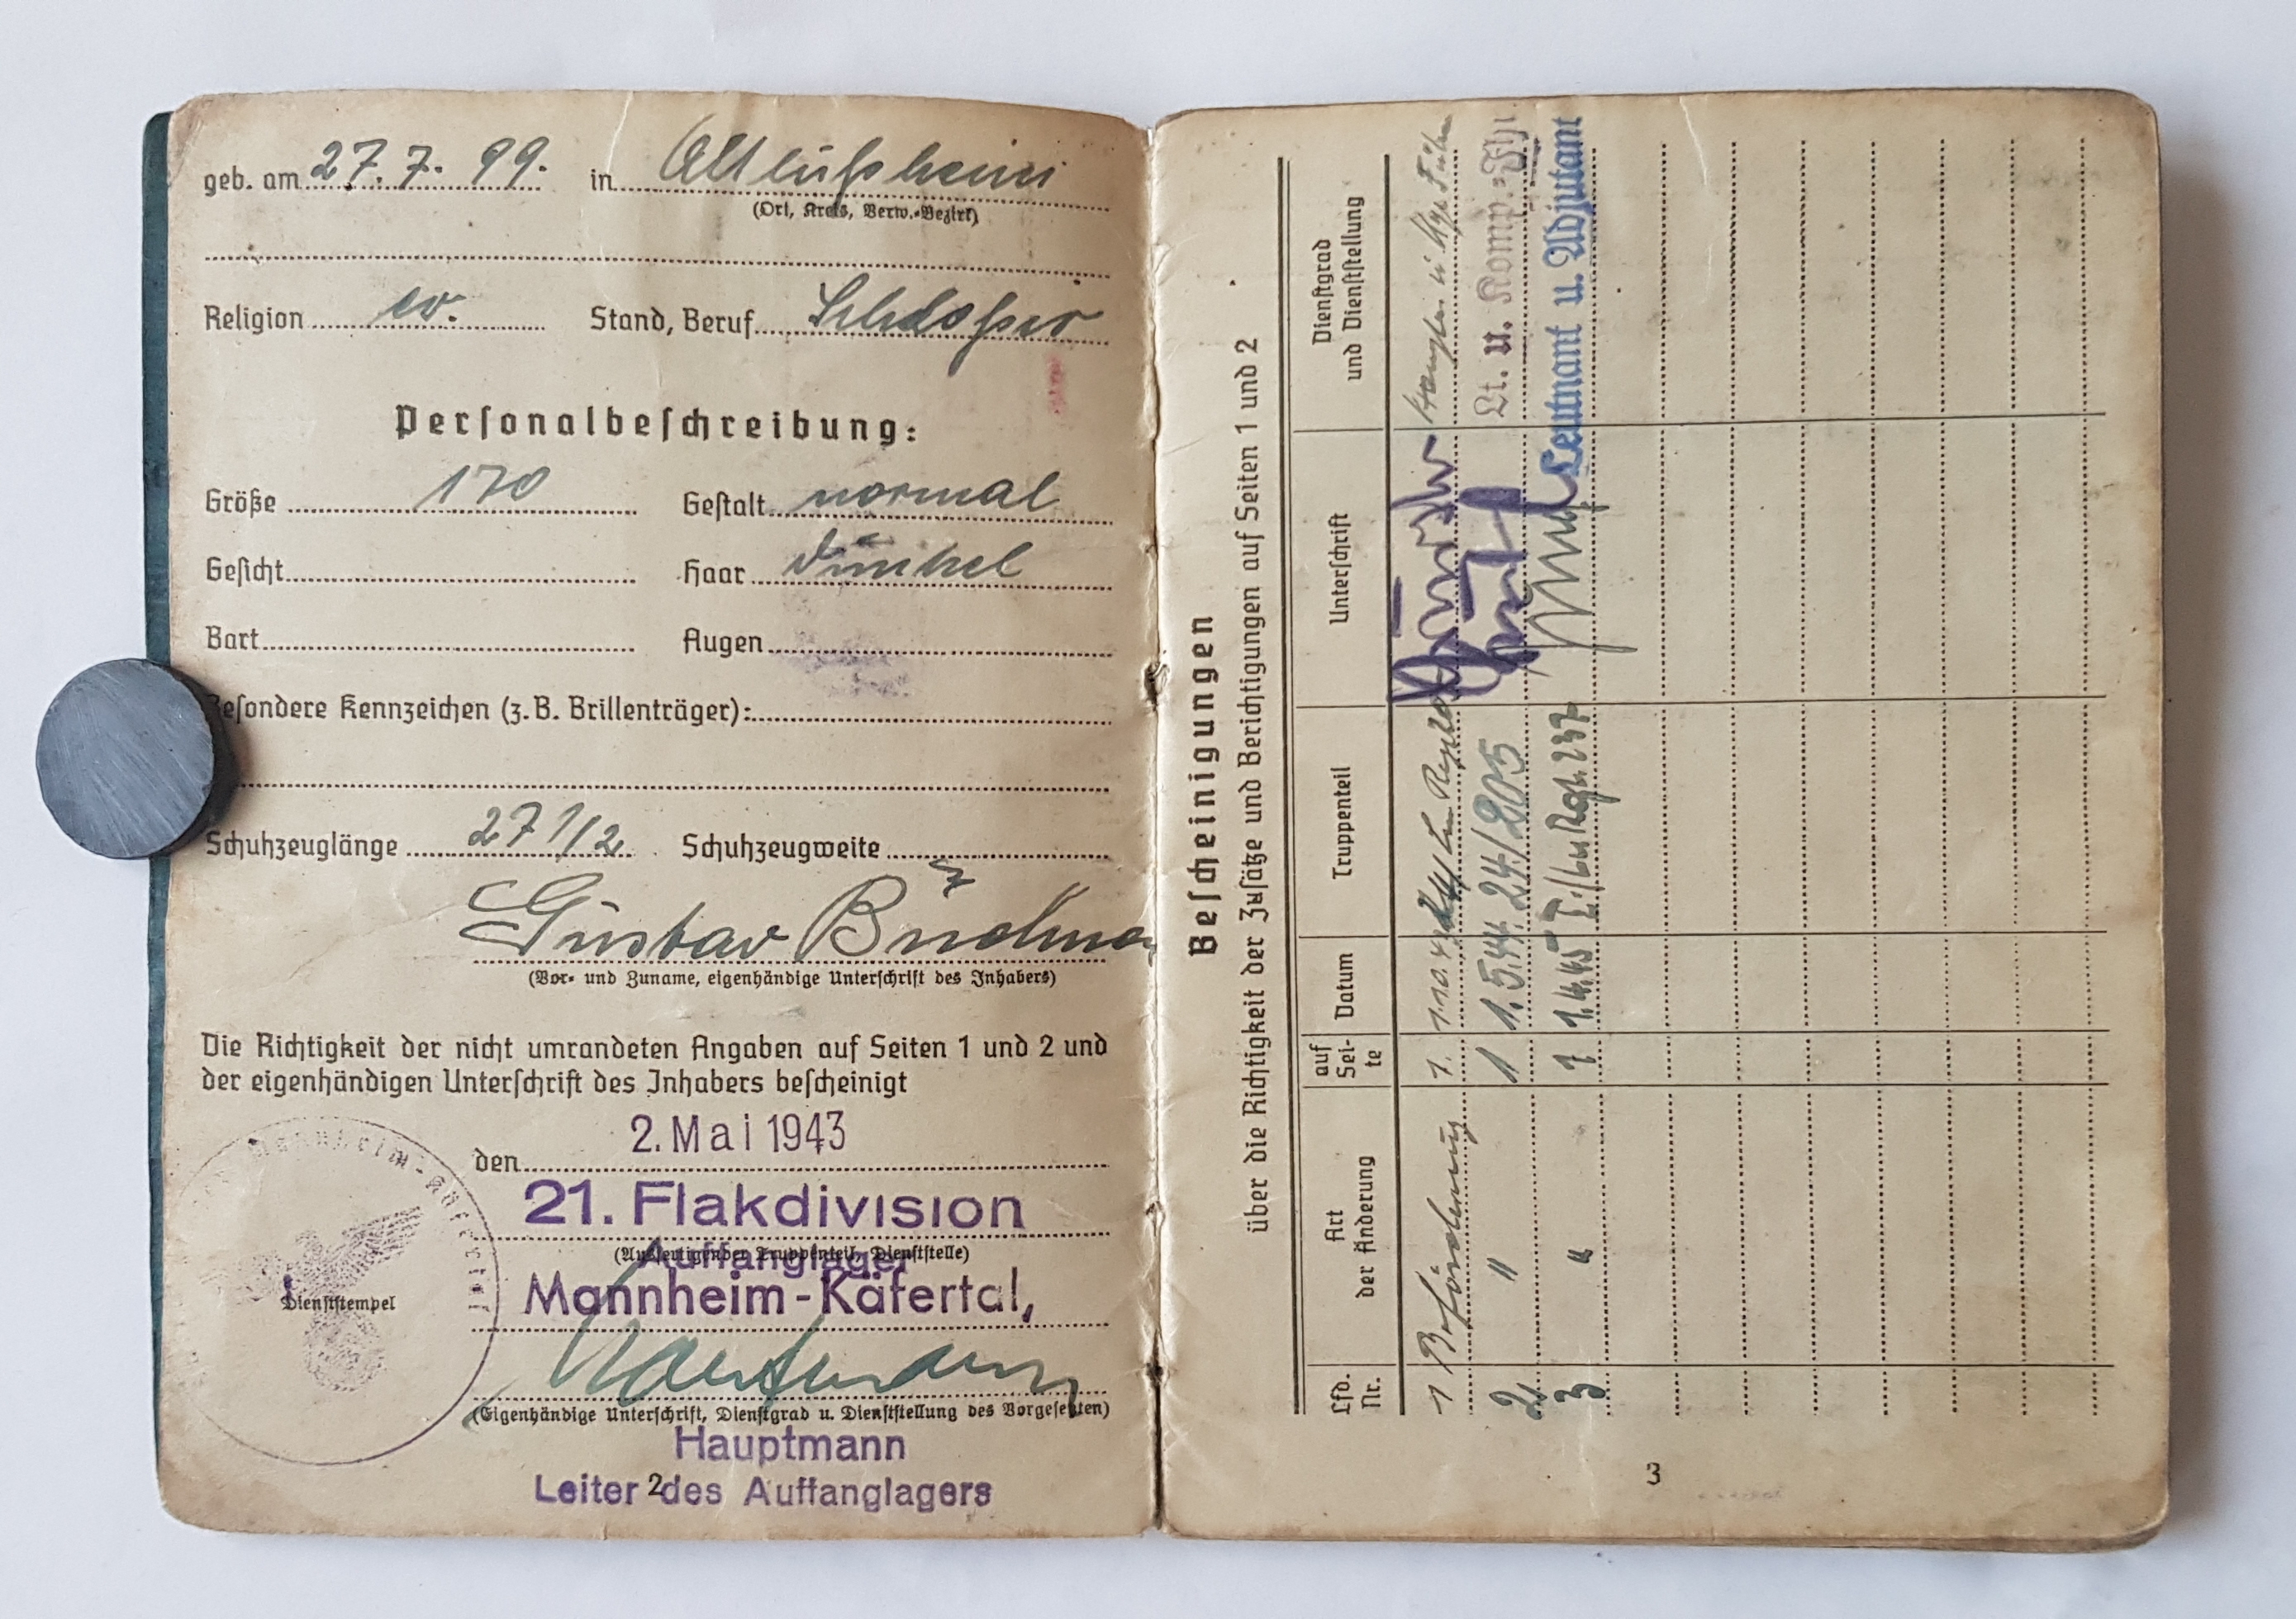 geb. am 27. 7. 99. in Altlußheim
(Ort, Kreis, Verw.-Bezirk)
Religion ev. Stand, Beruf Schlosser
Personalbeschreibung:
Größe 170 Gestalt normal
Gesicht Haar dunkel
Bart Augen
Besondere Kennzeichen (z. B. Brillenträger):
Schuhzeuglänge 27 1/2 Schuhzeugweite
Gustav
(Vor- und Zuname, eigenhändige Unterschrift des Inhabers)
Die Richtigkeit der nicht umrandeten Angaben auf Seiten 1 und 2 und
der eigenhändigen Unterschrift des Inhabers bescheinigt
den 2. Mai 1943
21. Flakdivision
(Ausfertigender Truppenteil, Dienststelle)
Auffanglager
Mannheim-Käfertal,
Dienststempel
(Eigenhändige Unterschrift, Dienstgrad u. Dienststellung des Vorgesetzten)
Hauptmann
Leiter des Auffanglagers
2
Bescheinigungen
über die Richtigkeit der Zusätze und Berichtigungen auf Seiten 1 und 2
Lfd. Nr. Art der Änderung auf Sei-te Datum Truppenteil Unterschrift Dienstgrad und Dienststellung
1 Beförderung 1.
2 " 1 1.5.44 24/205 Lt. u. Komp.-
3 " 1 1.4.45 237 Leutnant u. Adjutant
3